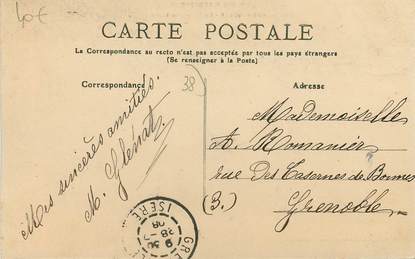 40€
CARTE POSTALE
La Correspondance au recto n'est pas acceptée par tous les pays étrangers
(Se renseigner à la Poste)
Correspondance
38
Adresse
Mes sincères amitiés.
M. Glénat
Mademoiselle
A. Romanier
rue Des Casernes de Bonnes
(3.) Grenoble
GRE
ISERE
9 30
28
08